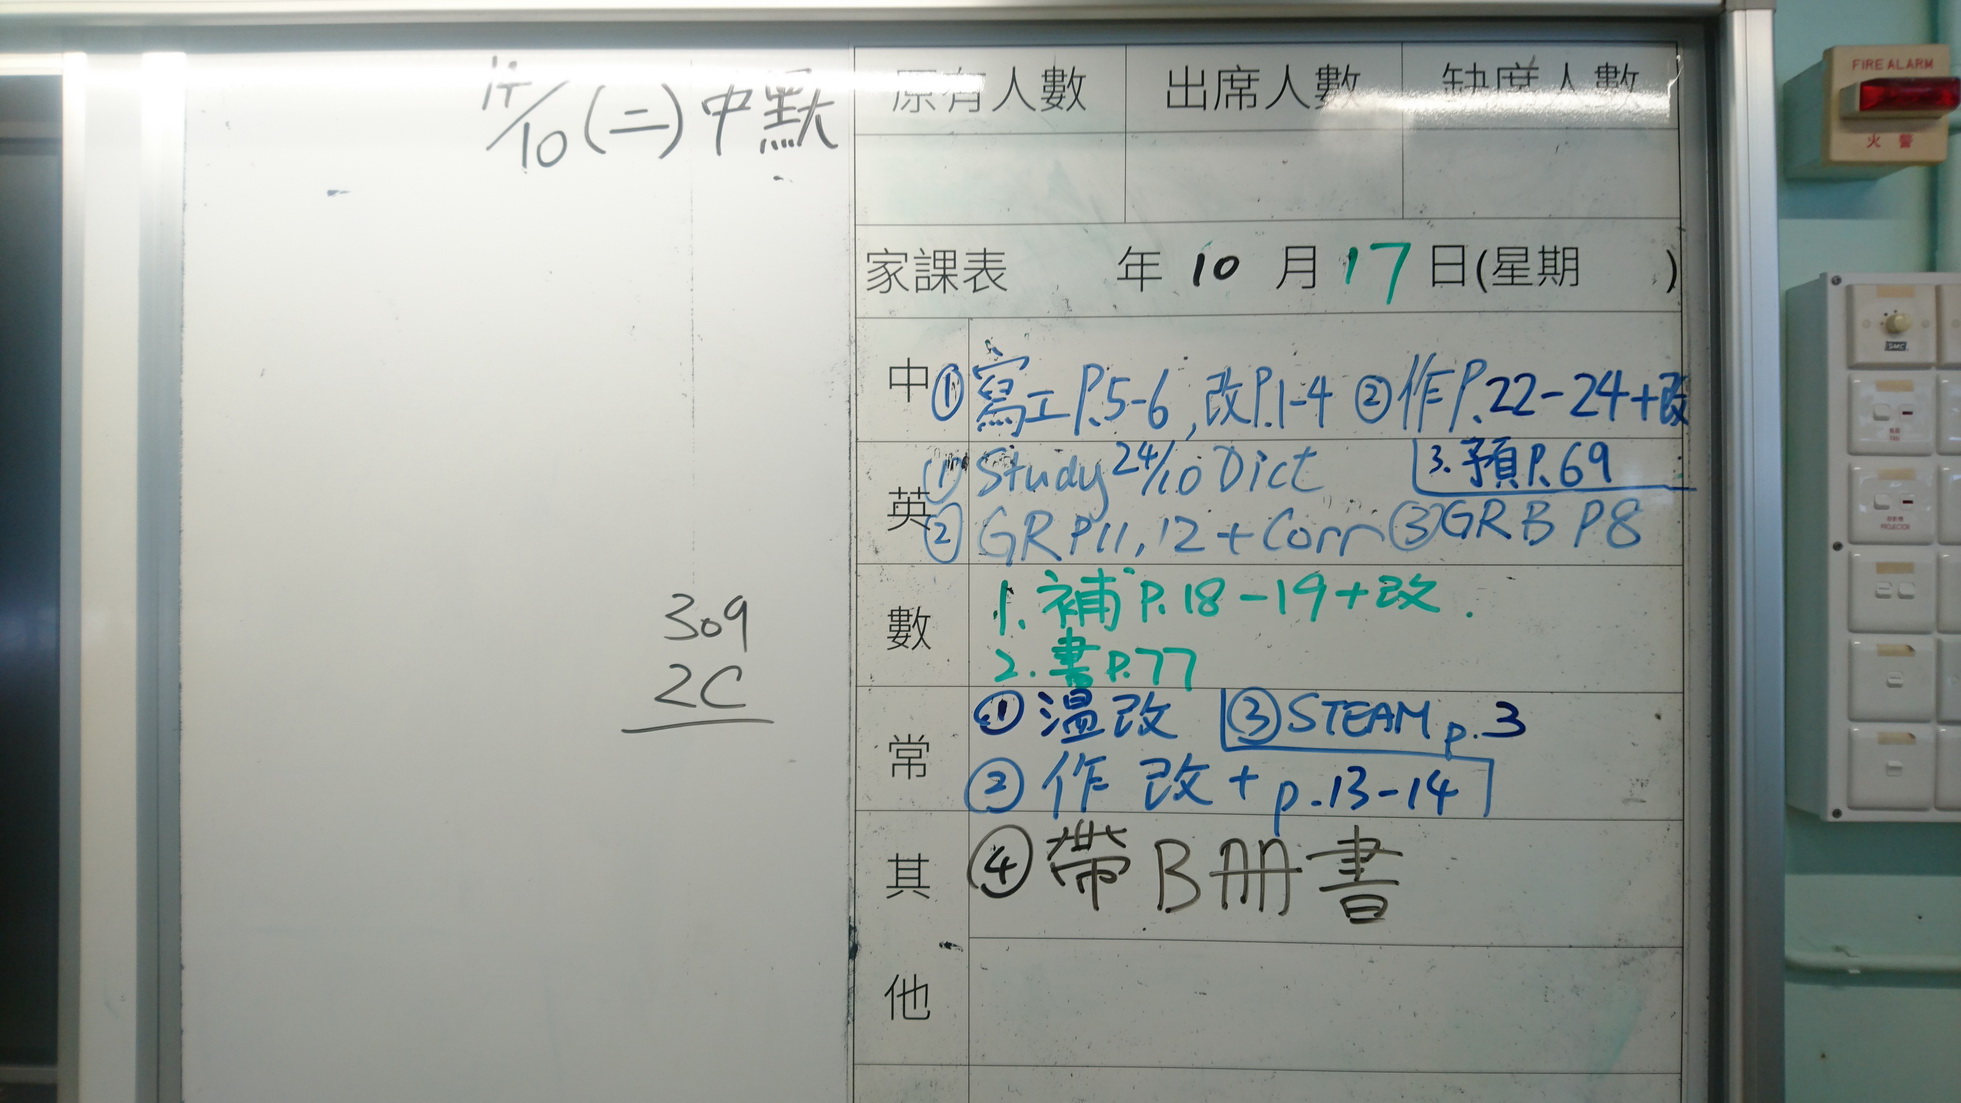 /10(二)中默
309
2C
原有人數 出席人數 缺席人數
家課表 年 10 月 17 日(星期 )
中 ①寫工P.5-6,改P.1-4 ②作P.22-24+改
3.預P.69
英 ① Study 24/10 Dict
② GR P11,12 + Corr ③GRB P8
數 1.補P.18-19+改.
2.書P.77
常 ①溫改 ③STEAM p.3
②作改+p.13-14
其他 ④帶B冊書
FIRE ALARM
火警
SMC
PROJECTOR